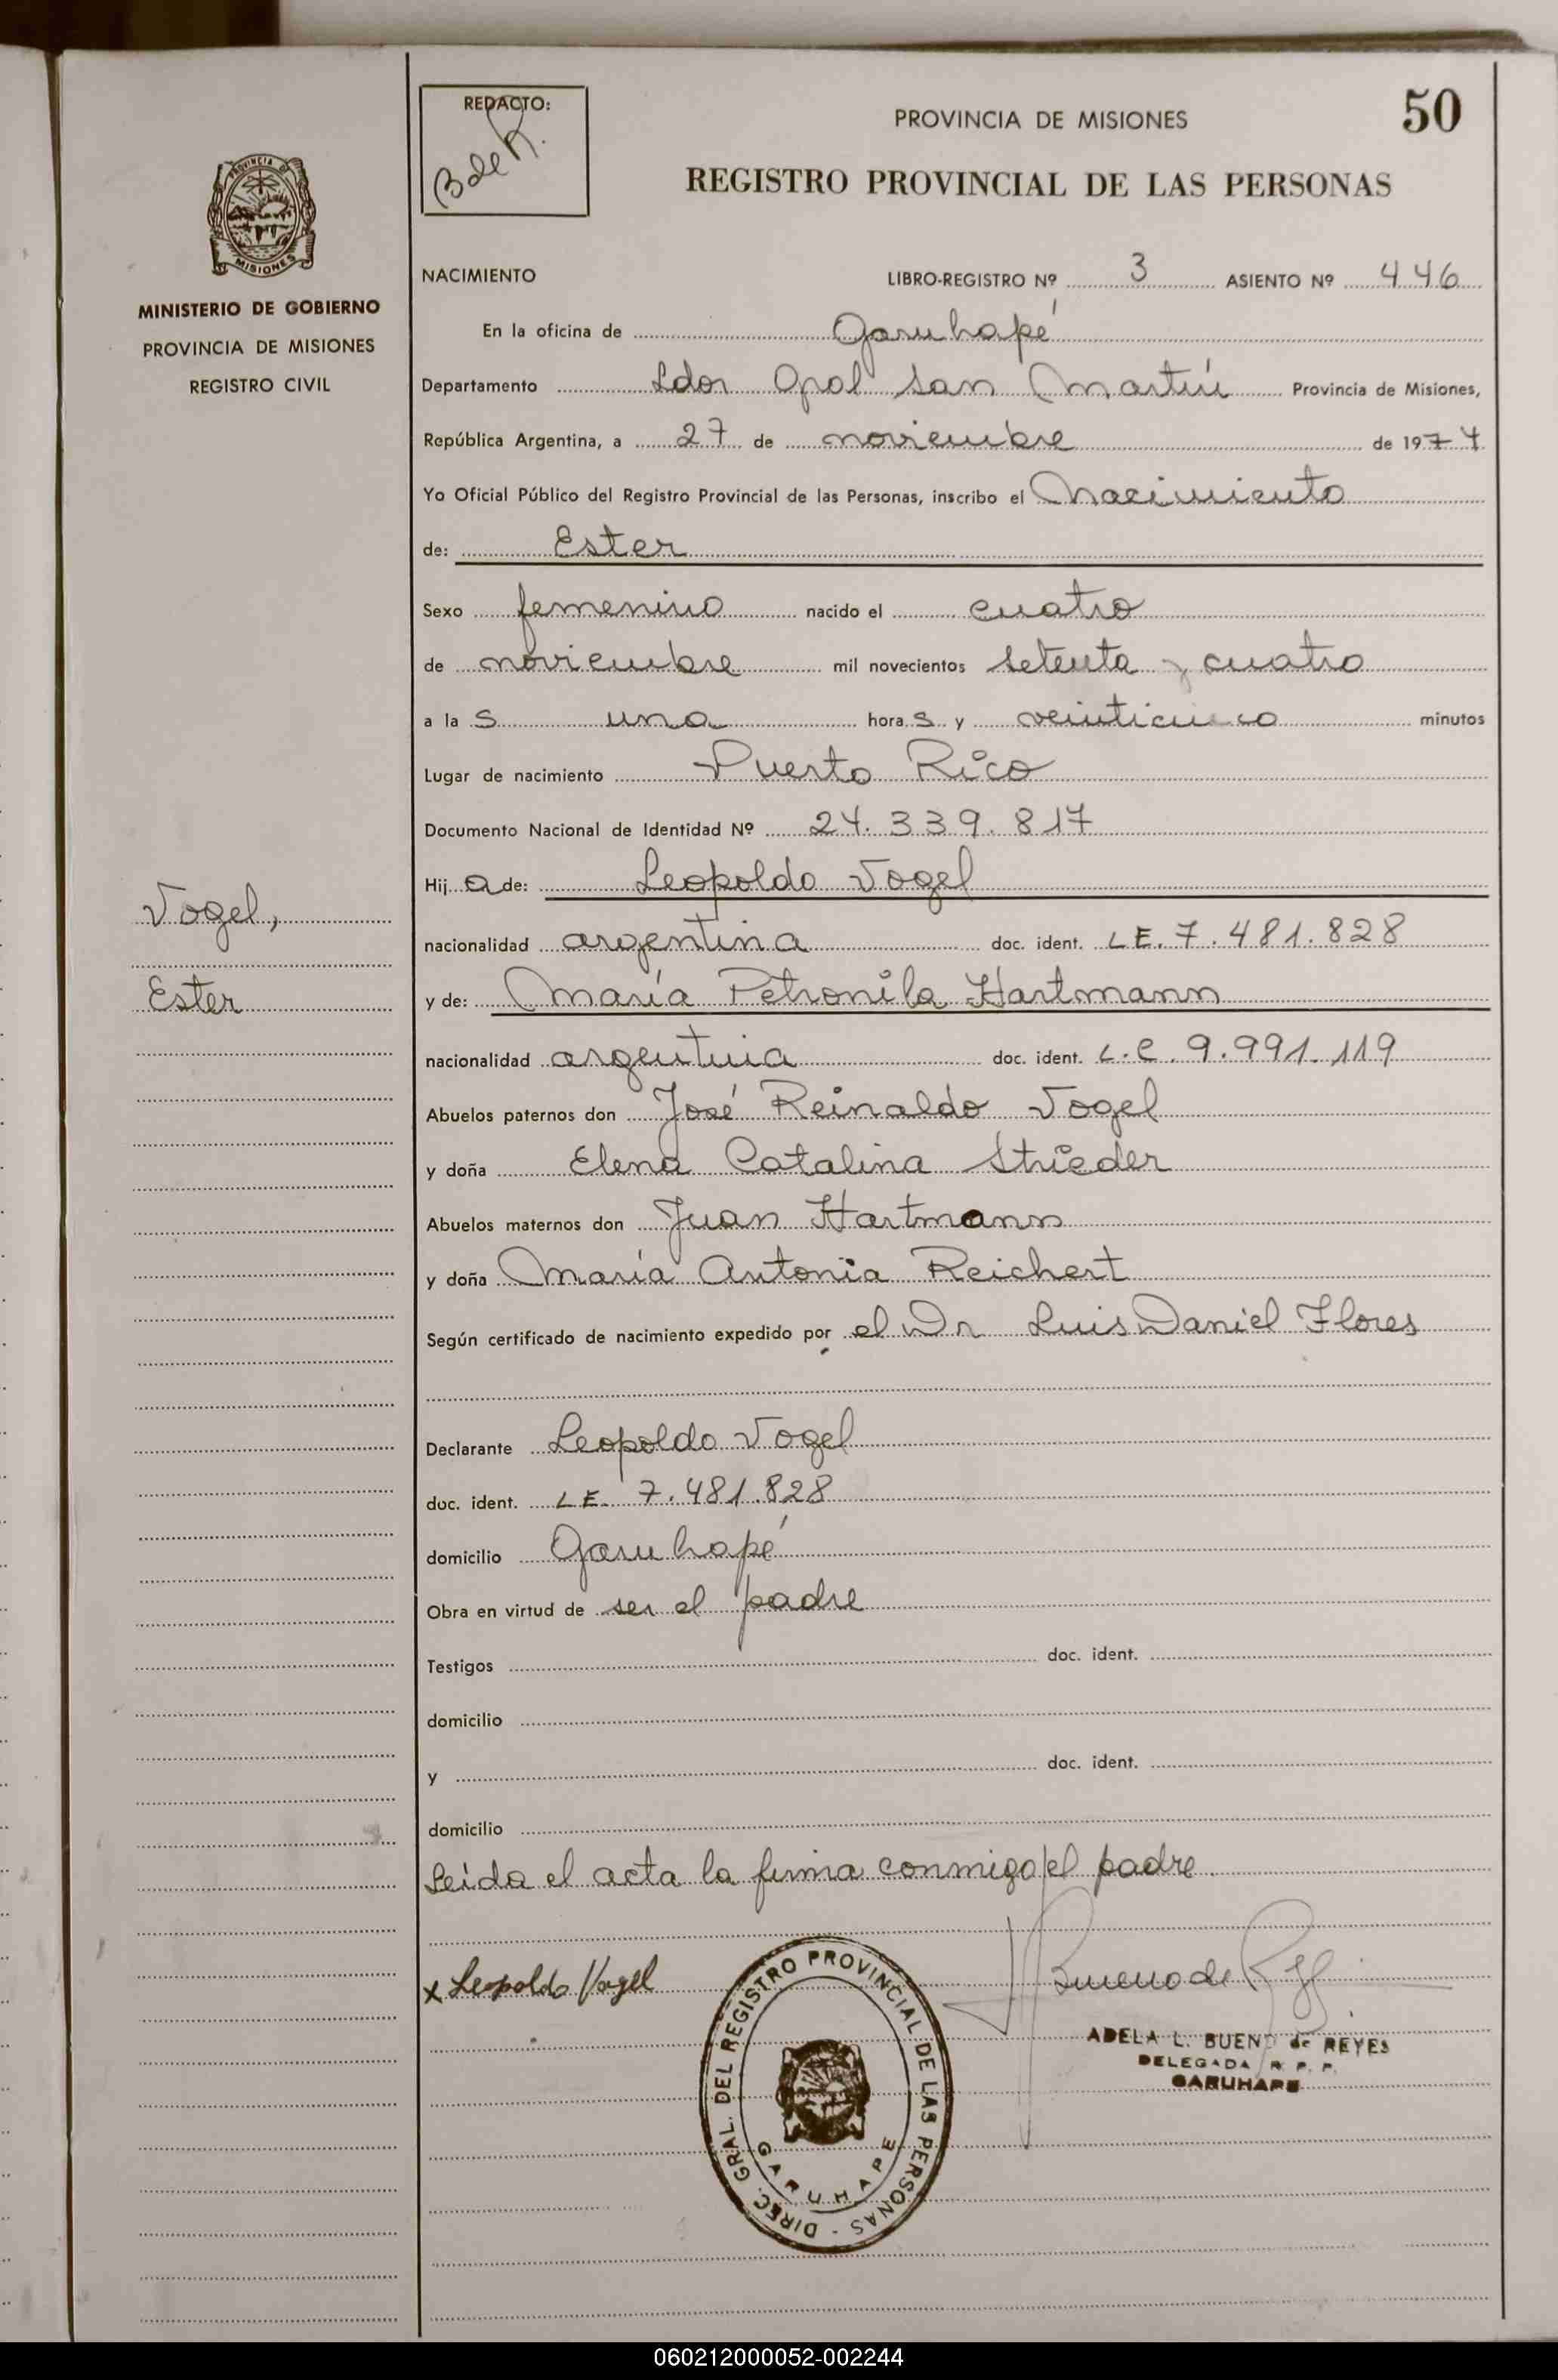 REDACTO:
B de R.
50
PROVINCIA DE MISIONES
REGISTRO PROVINCIAL DE LAS PERSONAS
PROVINCIA DE
MISIONES
MINISTERIO DE GOBIERNO
PROVINCIA DE MISIONES
REGISTRO CIVIL
NACIMIENTO LIBRO-REGISTRO Nº 3 ASIENTO Nº 446
En la oficina de Garuhapé
Departamento Ldor Gral San Martín Provincia de Misiones,
República Argentina, a 27 de noviembre de 1974
Yo Oficial Público del Registro Provincial de las Personas, inscribo el Nacimiento
de: Ester
Sexo femenino nacido el cuatro
de noviembre mil novecientos setenta y cuatro
a la s una hora s y veinticinco minutos
Lugar de nacimiento Puerto Rico
Documento Nacional de Identidad Nº 24.339.817
Hij a de: Leopoldo Vogel
Vogel,
nacionalidad argentina doc. ident. LE. 7.481.828
Ester
y de: María Petronila Hartmann
nacionalidad argentina doc. ident. L.C. 9.991.119
Abuelos paternos don José Reinaldo Vogel
y doña Elena Catalina Strieder
Abuelos maternos don Juan Hartmann
y doña María Antonia Reichert
Según certificado de nacimiento expedido por el Dr Luis Daniel Flores
Declarante Leopoldo Vogel
doc. ident. LE. 7.481.828
domicilio Garuhapé
Obra en virtud de ser el padre
Testigos doc. ident.
domicilio
y doc. ident.
domicilio
Leida el acta la firma conmigo el padre
x Leopoldo Vogel
Bueno de R
DIREC. GRAL. DEL REGISTRO PROVINCIAL DE LAS PERSONAS -
GARUHAPE
ADELA L. BUENO de REYES
DELEGADA R. P. P.
GARUHAPE
060212000052-002244